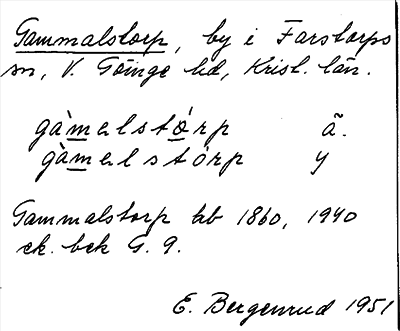 Gammalstorp, by i Farstorps
sn, V. Göinge hd, Krist. län.
gàmelstórp ä.
gàmelstórp y
Gammalstorp kb 1860, 1940
ek. bek G. 9.
E. Bergenrud 1951